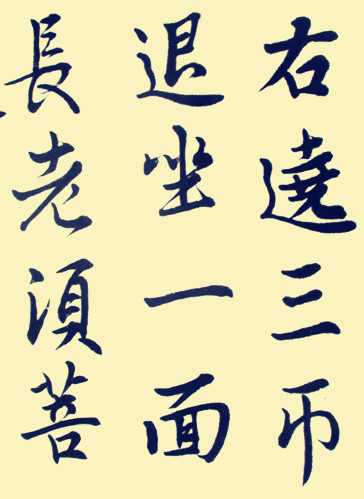 右遶三帀
退坐一面
長老湏菩